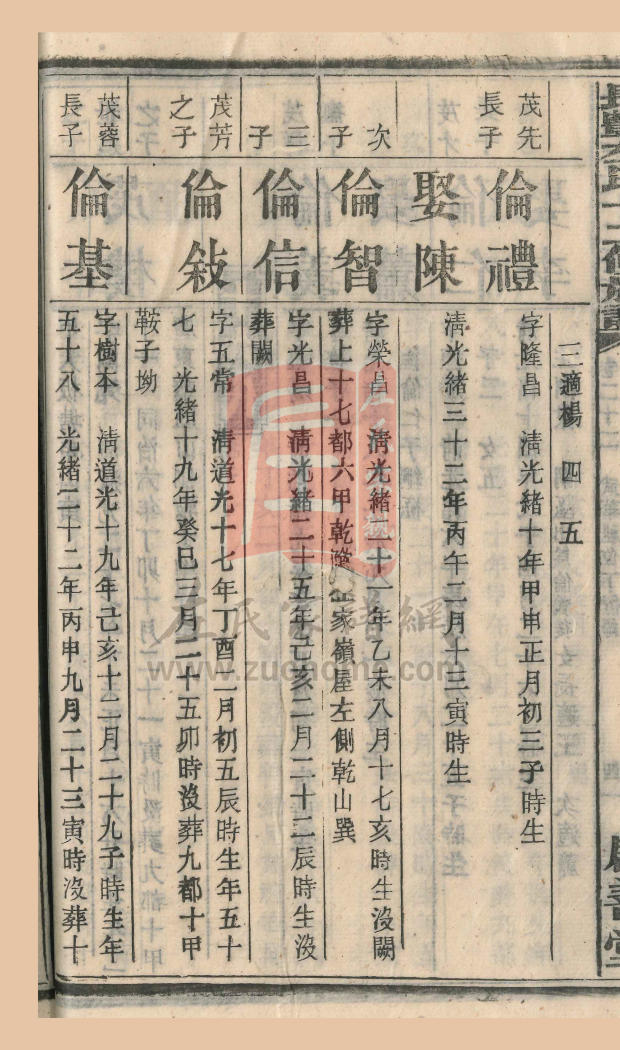 三適楊 四 五
茂先
長子
倫禮
字隆昌 清光緒十年甲申正月初三子時生
娶陳
清光緒三十二年丙午二月十三寅時生
次
子
倫智
字榮昌 清光緒二十一年乙未八月十七亥時生沒闕
葬上十七都六甲乾 家嶺屋左側乾山巽
三
子
倫信
字光昌 清光緒二十五年己亥二月二十二辰時生沒
葬闕
茂芳
之子
倫敍
字五常 清道光十七年丁酉二月初五辰時生年五十
七 光緒十九年癸巳三月二十五卯時沒葬九都十甲
鞍子坳
茂蓉
長子
倫基
字樹本 清道光十九年己亥十二月二十九子時生年
五十八 光緒二十二年丙申九月二十三寅時沒葬十
左氏家譜網
www.zuohome.com